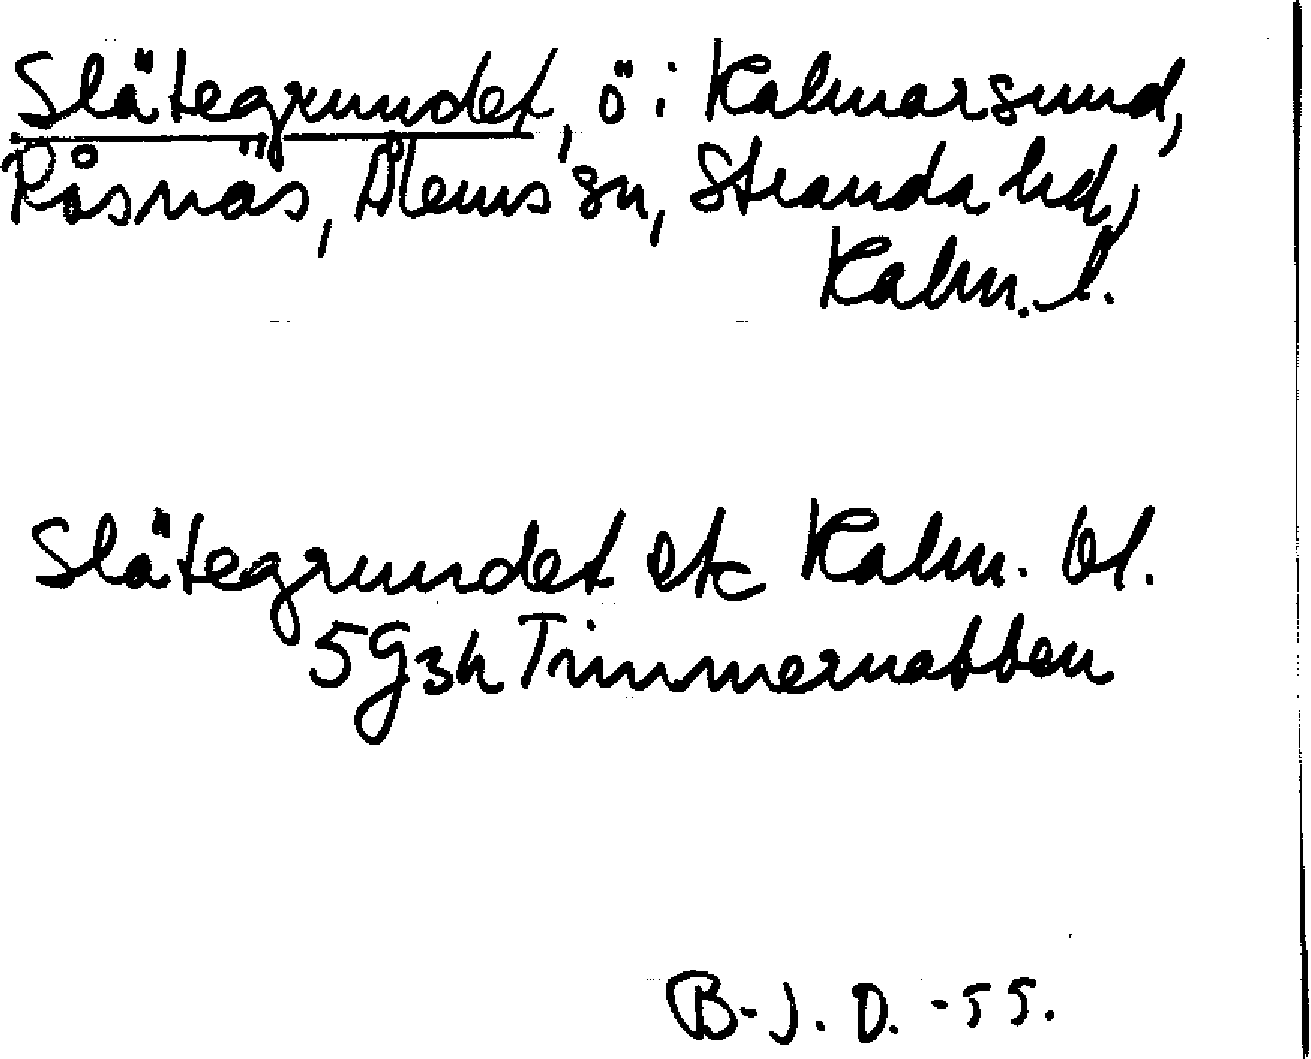 Slätegrundet, ö i Kalmarsund,
Råsnäs, Ålems sn, Stranda hd,
Kalm. l.
Slätegrundet etc Kalm. bl.
5g3h Timmernabben
B-J. D. -55.